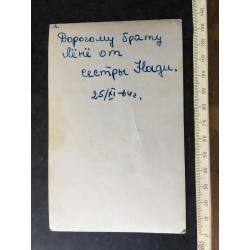 Дорогому брату
Лёне от
сестры Нади.
25/XI-64г.